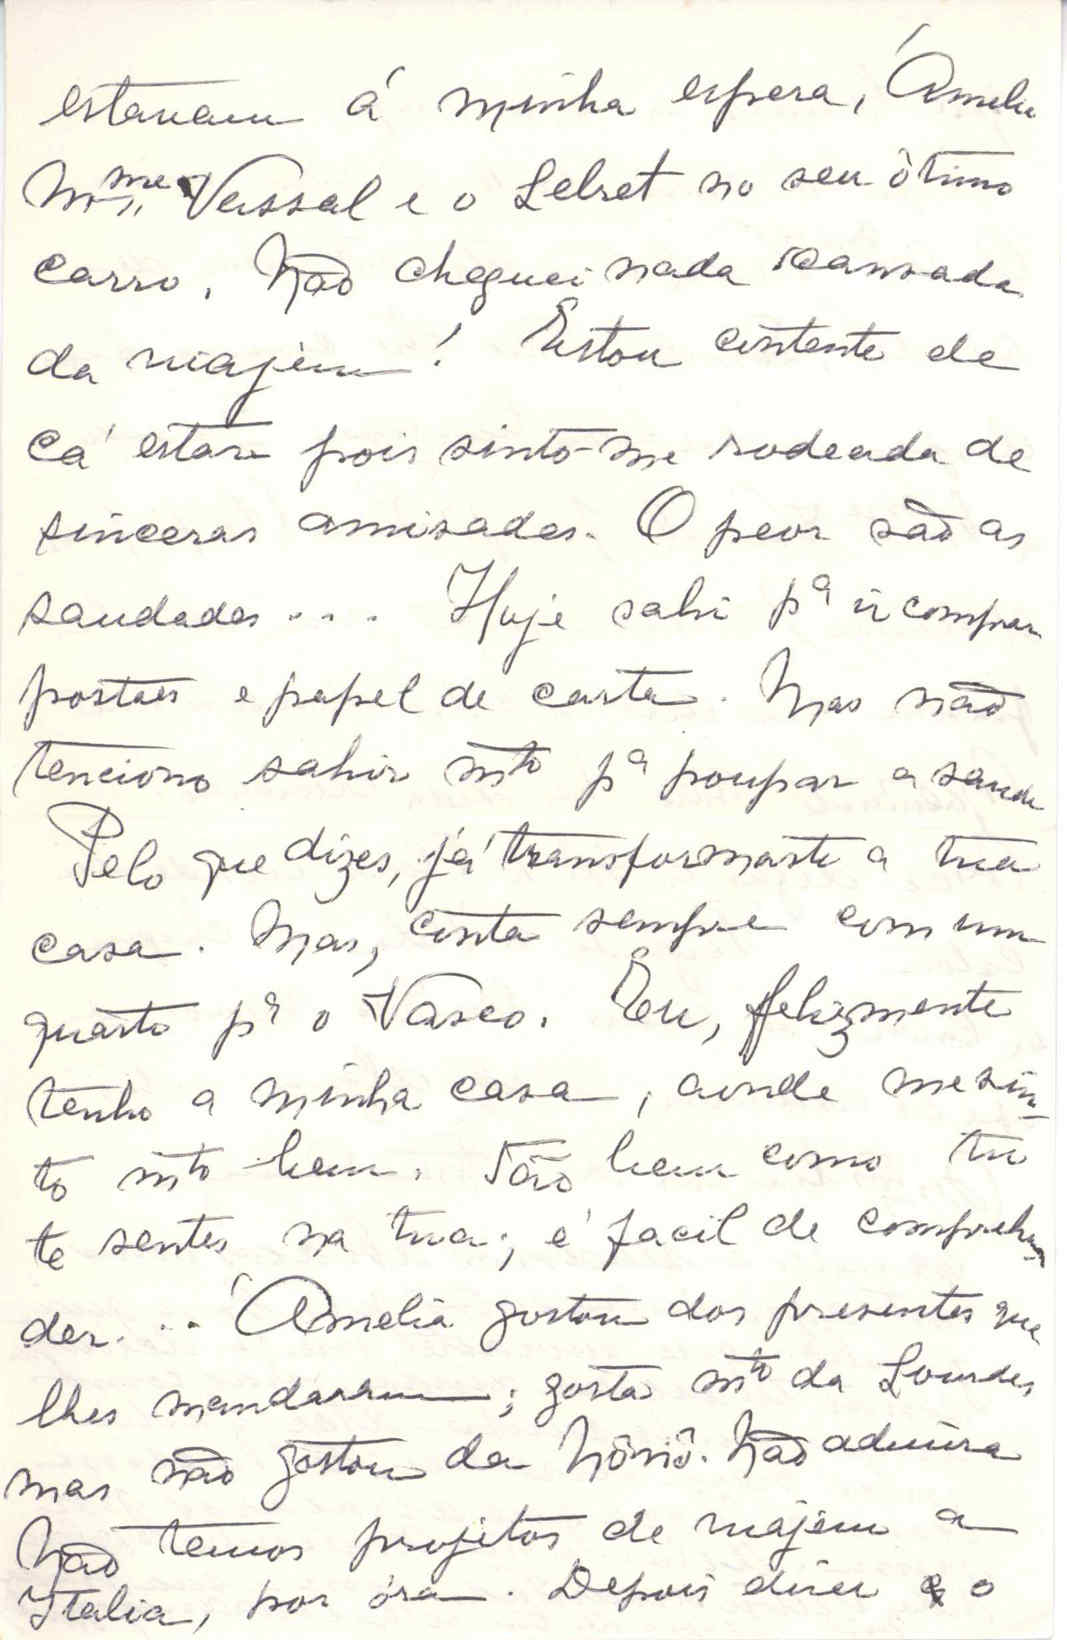 estavam á minha espera, Ámelia
Mme Vassal e o Lebret no seu ôtimo
carro. Não cheguei nada cansada
da viagem! Estou contente de
cá estar pois sinto-me rodeada de
sinceras amisades. O peor são as
saudades.... Hoje sahi pª ir comprar
postaes e papel de carta. Mas não
tenciono sahir mto pª poupar a saude
Pelo que dizes, já transformaste a tua
casa. Mas, conta sempre com um
quarto pª o Vasco. Eu, felizmente
tenho a minha casa, aonde me sin-
to mto bem. Tão bem como tu
te sentes na tua; é facil de comprehen
der... Ámelia gostou dos presentes que
lhes mandaram; gosta mto da Lourdes
mas não gostou da Nônô. Não admira
Não temos projetos de viajem a
Italia, por óra. Depois direi o